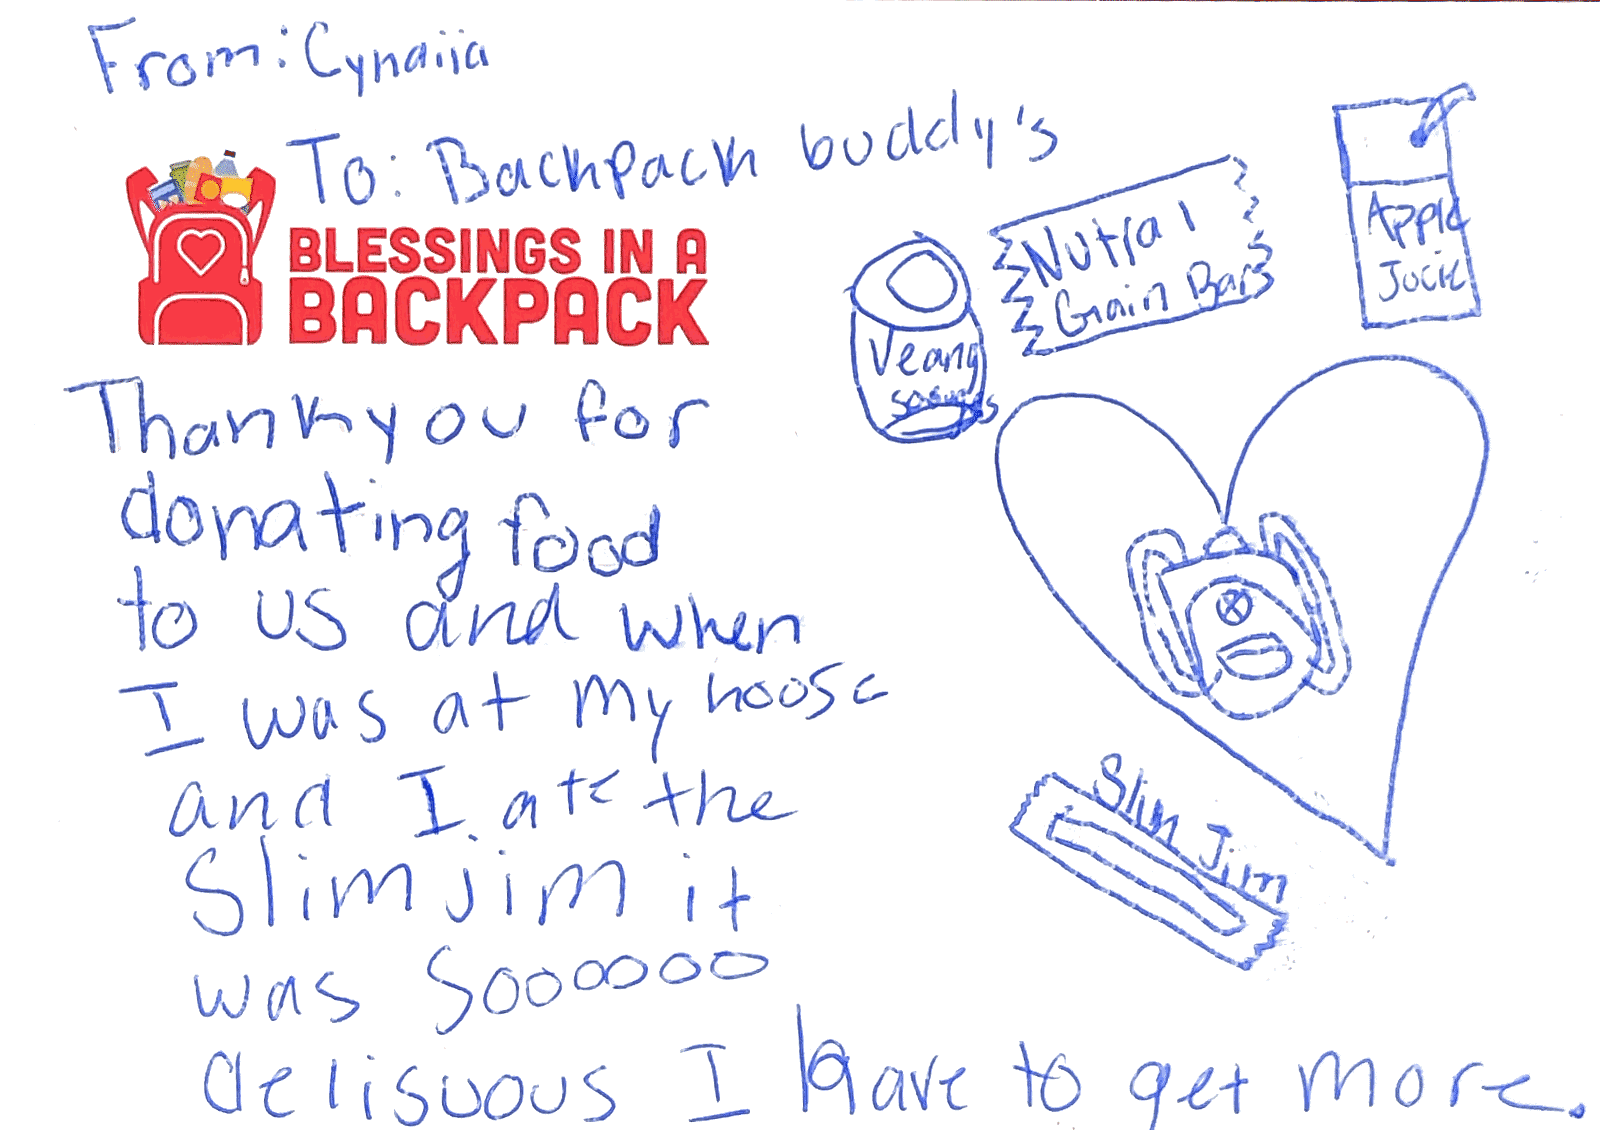 From: Cynaiia
To: Backpack buddy's
BLESSINGS IN A
BACKPACK
Thank you for
donating food
to us and when
I was at my hoose
and I ate the
Slim jim it
was soooooo
delisuous I have to get more.
Veang
Nutral
Grain Bars
Apple
Jucie
Slim Jim